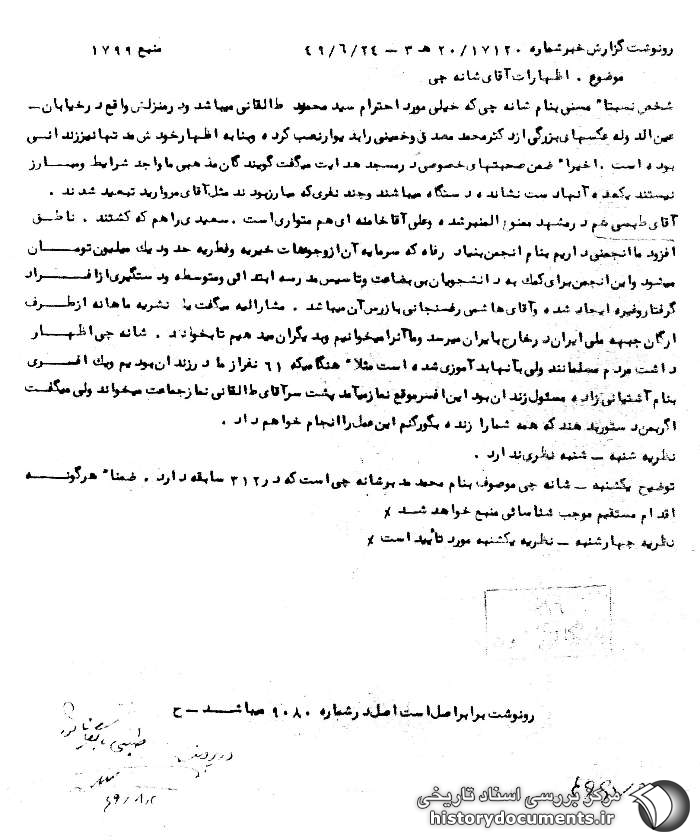 رونوشت گزارش خبر شماره ۲۰/۱۷۱۲۰ هـ ۳ – ۴۹/۶/۲۴ منبع ۱۷۹۹
موضوع . اظهارات آقای شانه چی
شخص نسبتا" مسنی بنام شانه چی که خیلی مورد احترام سید محمود طالقانی میباشد و در منزلش واقع در خیابان –
عین الدوله عکسهای بزرگی از دکتر محمد مصدق و خمینی را بدیوار نصب کرده و بنا به اظهار خودش مدتها نیز زندانی
بوده است . اخیرا" ضمن صحبتهای خصوصی در مسجد هدایت میگفت گویندگان مذهبی ما واجد شرایط و مبارز
نیستند یکعده آنها دست نشانده دستگاه میباشند و چند نفری که مبارز بودند مثل آقای مروارید تبعید شدند .
آقای طبسی هم در مشهد ممنوع المنبر شده و علی آقا خامنه ای هم متواری است . سعیدی را هم که کشتند . ناطق
افزود ما انجمنی داریم بنام انجمن بنیاد رفاه که سرمایه آن از وجوهات خیریه و فطریه حدود یک میلیون تومان
میشود و این انجمن برای کمک به دانشجویان بی بضاعت و تاسیس مدرسه ابتدائی و متوسطه و دستگیری از افراد
گرفتار و غیره ایجاد شده و آقای هاشمی رفسنجانی بازرس آن میباشد . مشارالیه میگفت یک نشریه ماهانه از طرف
ارگان جبهه ملی ایران در خارج بایران میرسد و ما آنرا میخوانیم و بدیگران میدهیم تا بخوانند . شانه چی اظهار
داشت مردم مسلمانند ولی بآنها بد آموزی شده است مثلا" هنگامیکه ۶۱ نفر از ما در زندان بودیم و یک افسری
بنام آشتیانی زاده مسئول زندان بود این افسر موقع نماز میآمد پشت سر آقای طالقانی نماز جماعت میخواند ولی میگفت
اگر بمن دستور بدهند که همه شما را زنده بگور کنم این عمل را انجام خواهم داد .
نظریه شنبه – شنبه نظری ندارد .
توضیح یکشنبه – شانه چی موصوف بنام محمد مدیر شانه چی است که در ۳۱۲ سابقه دارد . ضمنا" هرگونه
اقدام مستقیم موجب شناسائی منبع خواهد شد ×
نظریه چهارشنبه – نظریه یکشنبه مورد تأیید است ×
رونوشت برابر اصل است اصل در شماره ۹۰۸۰ میباشد – ح
مرکز بررسی اسناد تاریخی
historydocuments.ir